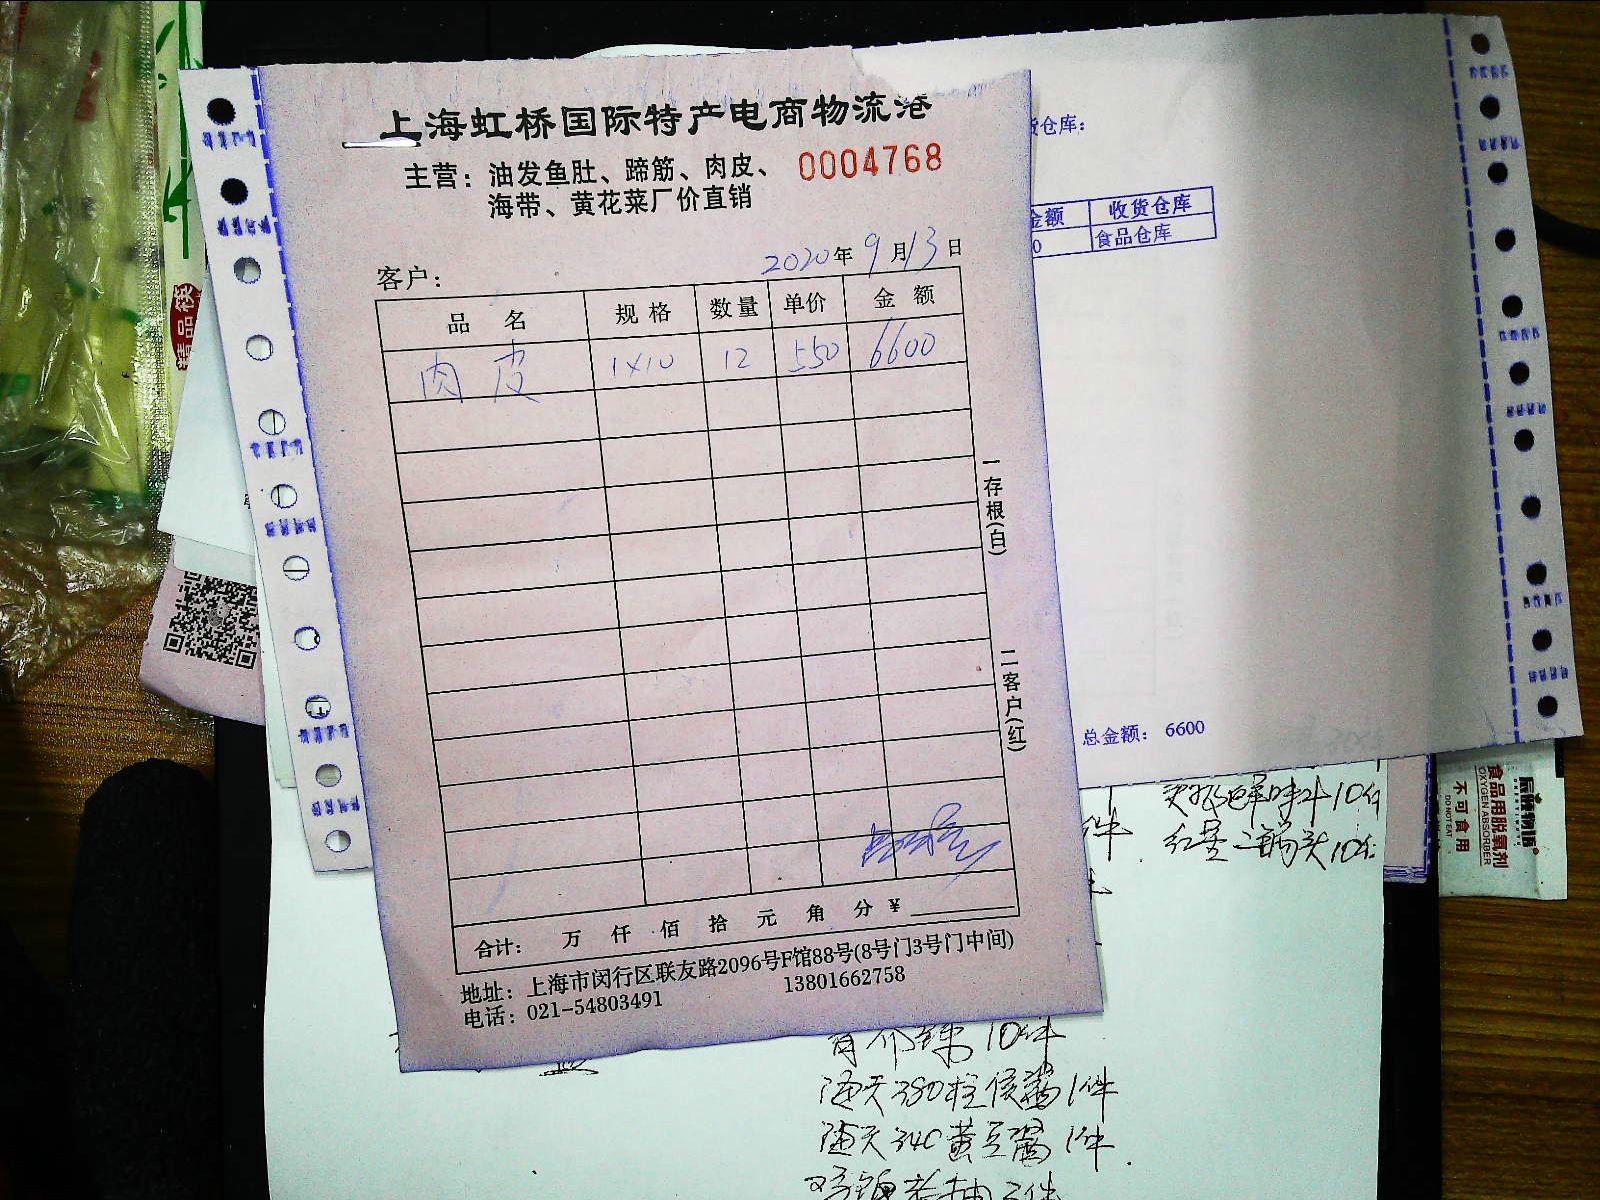 上海虹桥国际特产电商物流港
主营：油发鱼肚、蹄筋、肉皮、
海带、黄花菜厂价直销
0004768
2020年9月13日
客户：
品 名 规 格 数量 单价 金 额
肉 皮 1×10 12 550 6600
一存根(白)
二客户(红)
合计： 万 仟 佰 拾 元 角 分 ¥
地址：上海市闵行区联友路2096号F馆88号(8号门3号门中间)
电话：021-54803491 13801662758
货仓库：
金额 收货仓库
0 食品仓库
总金额： 6600
精品筷
食品用脱氧剂
OXYGEN ABSORBER
不可食用
DO NOT EAT
10件
红星二锅头10件
件
10件
海天380柱侯酱1件
海天340黄豆酱1件